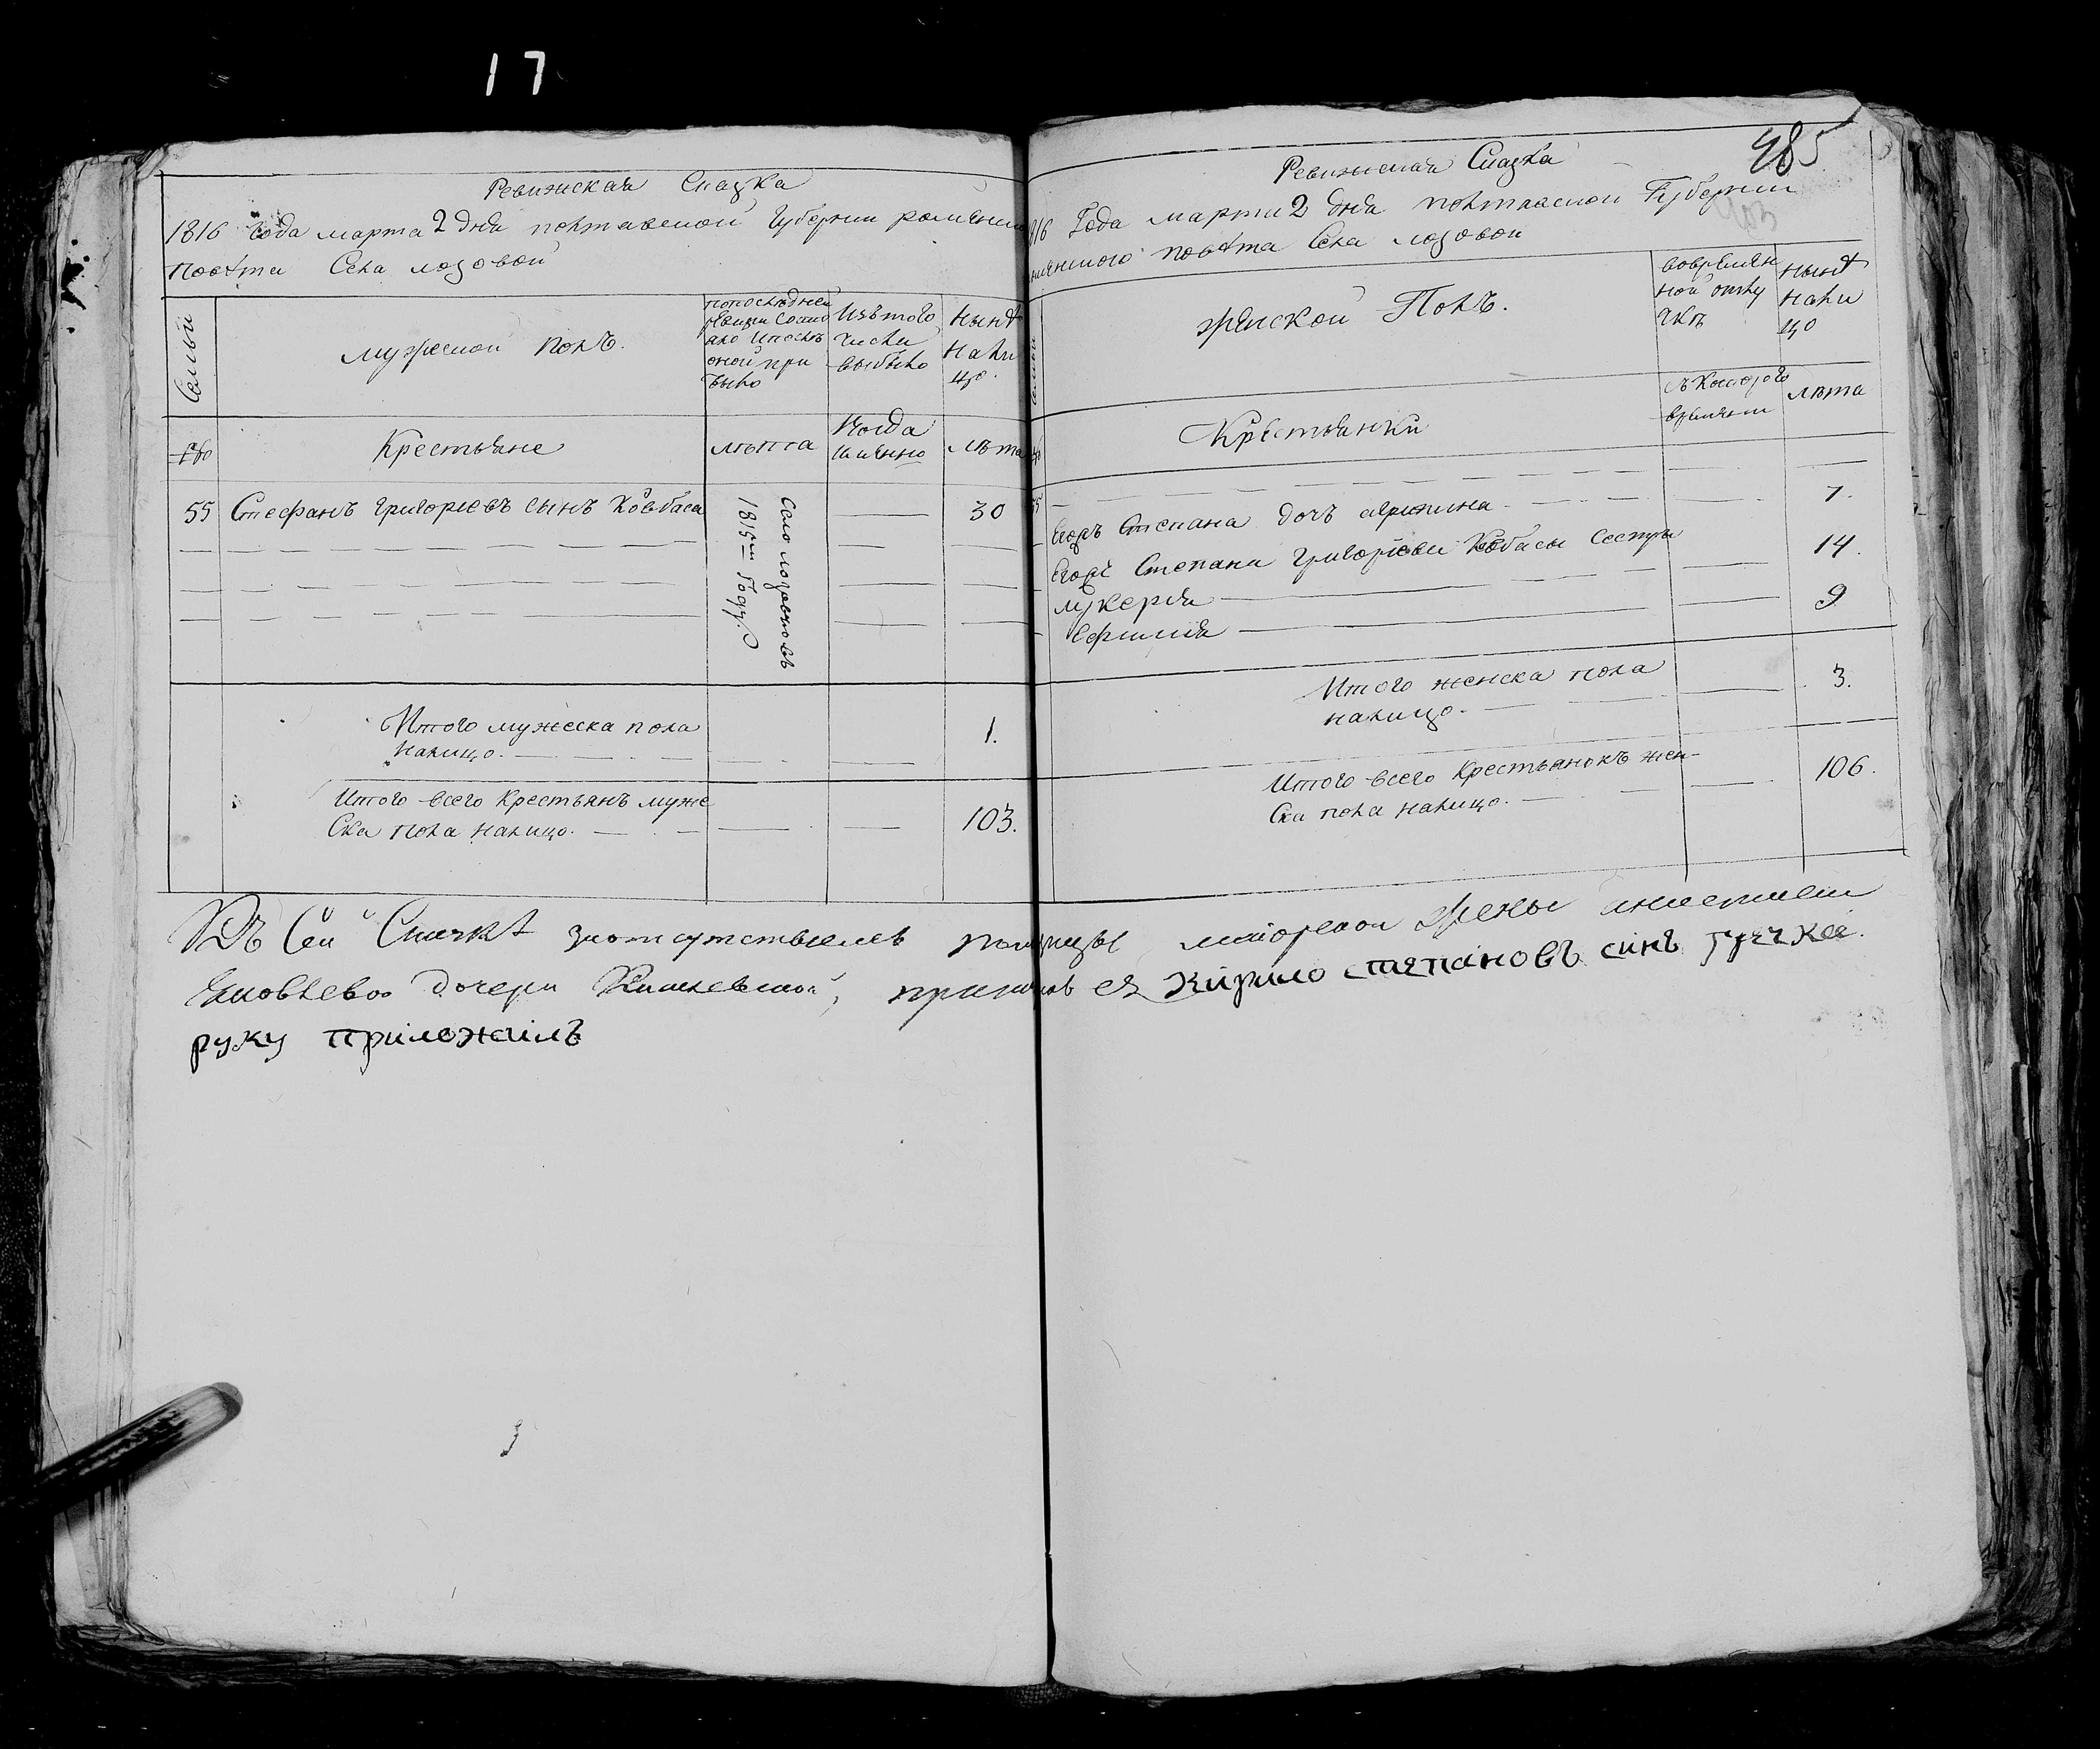 17
Ревижская Сказка
1816 Года марта 2 дня полтавской Губернии роменского
Повѣта Села лозовой
Семьи
мужеской полъ.
попослѣдней
ревизи состо
яло ипослѣ
оной при
было
Изътого
числа
выбыло
Нынѣ
нали
цо.
№
Крестьяне
лѣта
Когда
имянно
лѣта
55 Стефанъ Григорiевъ сынъ Ковбаса
1815м Году
30
Итого мужеска пола
налицо.
1.
Итого всего Крестьянъ муже
Ска пола налицо.
103.
485
403
Ревижская Сказка
1816 Года марта 2 дня полтавской Губернии
роменского повѣта Села лозовой
Семьи
женской Полъ.
вовремян
ной отлу
чкѣ
нынѣ
нали
цо
№
Крестьянки
съ Которого
времяни
лѣта
55
Егожъ Степана дочъ 7.
Егоже Степана Григорiева Ковбасы Сестры
лукерiя 14.
Ефимiя 9
Итого женска пола
налицо. 3.
Итого всего Крестьянокъ жен-
Ска пола налицо. 106.
Къ Сей Сказкѣ помѣщицы майорской жены
Яковлевой дочери прикащикъ ея Кирило степановъ синъ гречка
руку приложилъ